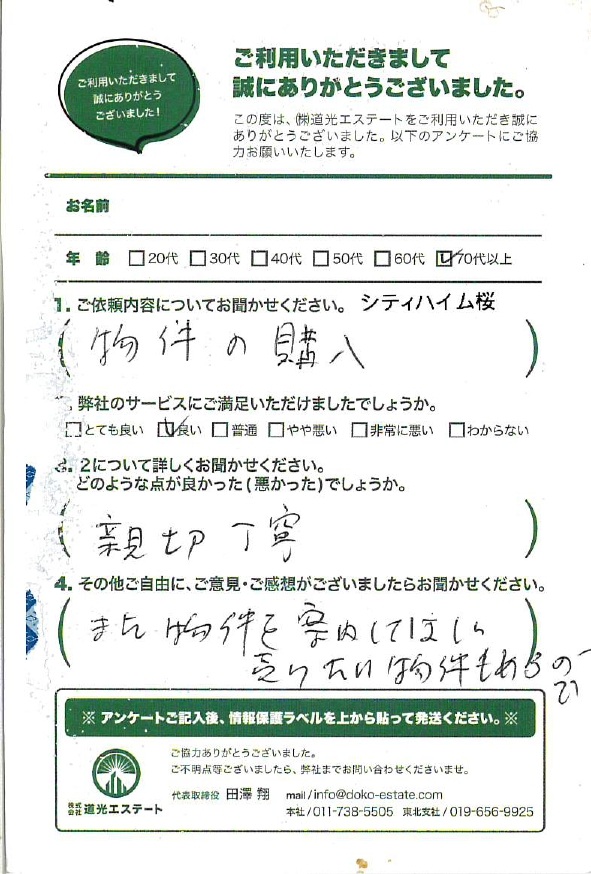 ご利用いただきまして
誠にありがとう
ございました！
ご利用いただきまして
誠にありがとうございました。
この度は、㈱道光エステートをご利用いただき誠に
ありがとうございました。以下のアンケートにご協
力お願いいたします。
お名前
年 齢 □20代 □30代 □40代 □50代 □60代 ☑70代以上
1. ご依頼内容についてお聞かせください。 シティハイム桜
(物件の購入)
. 弊社のサービスにご満足いただけましたでしょうか。
□とても良い ☑良い □普通 □やや悪い □非常に悪い □わからない
3. 2について詳しくお聞かせください。
どのような点が良かった(悪かった)でしょうか。
(親切丁寧)
4. その他ご自由に、ご意見・ご感想がございましたらお聞かせください。
(また物件を案内してほしい)
売りたい物件もあるので
※ アンケートご記入後、情報保護ラベルを上から貼って発送ください。※
ご協力ありがとうございました。
ご不明点等ございましたら、弊社までお問い合わせくださいませ。
株式会社 道光エステート
代表取締役 田澤 翔 mail/info@doko-estate.com
本社/011-738-5505 東北支社/019-656-9925